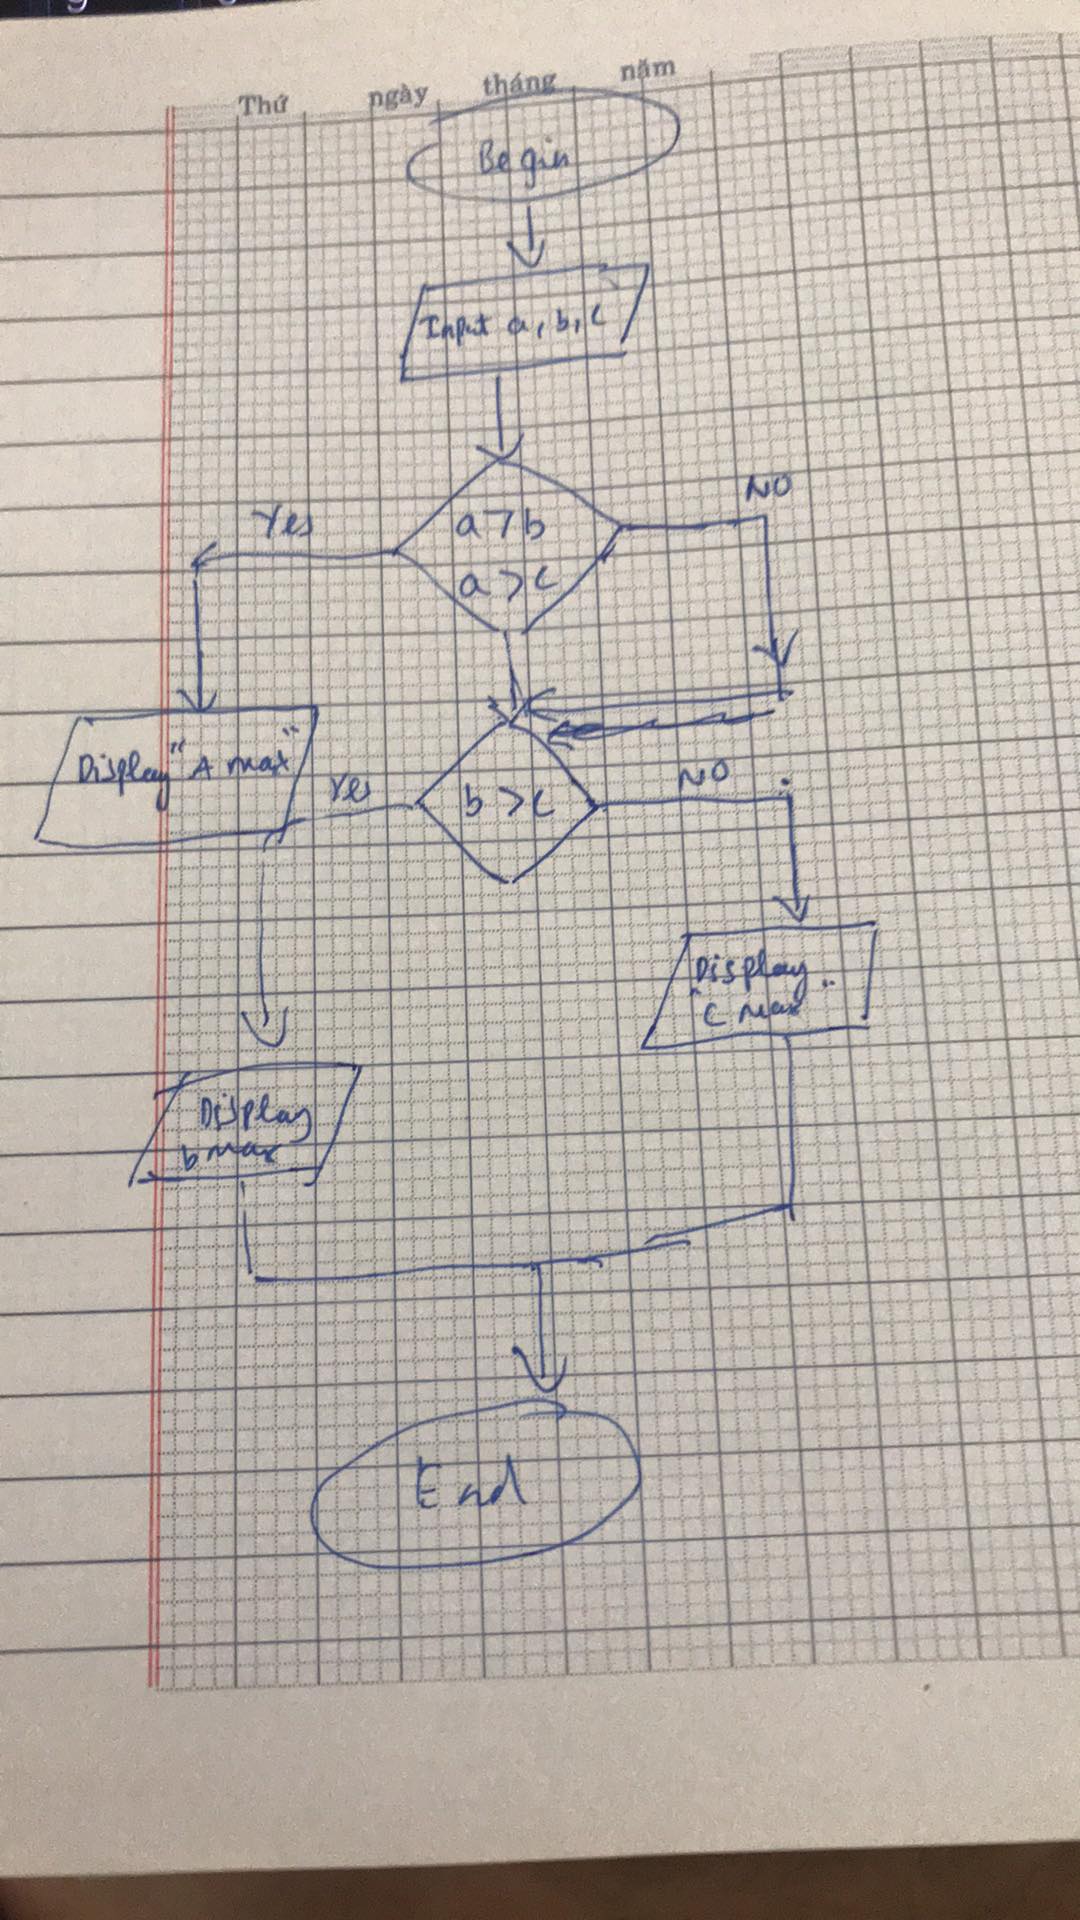 Thứ ngày tháng năm
Begin
Input a, b, c
Yes
a > b
a > c
NO
Display "A max"
Yes
b > c
NO
Display
"C max"
Display
b max
End